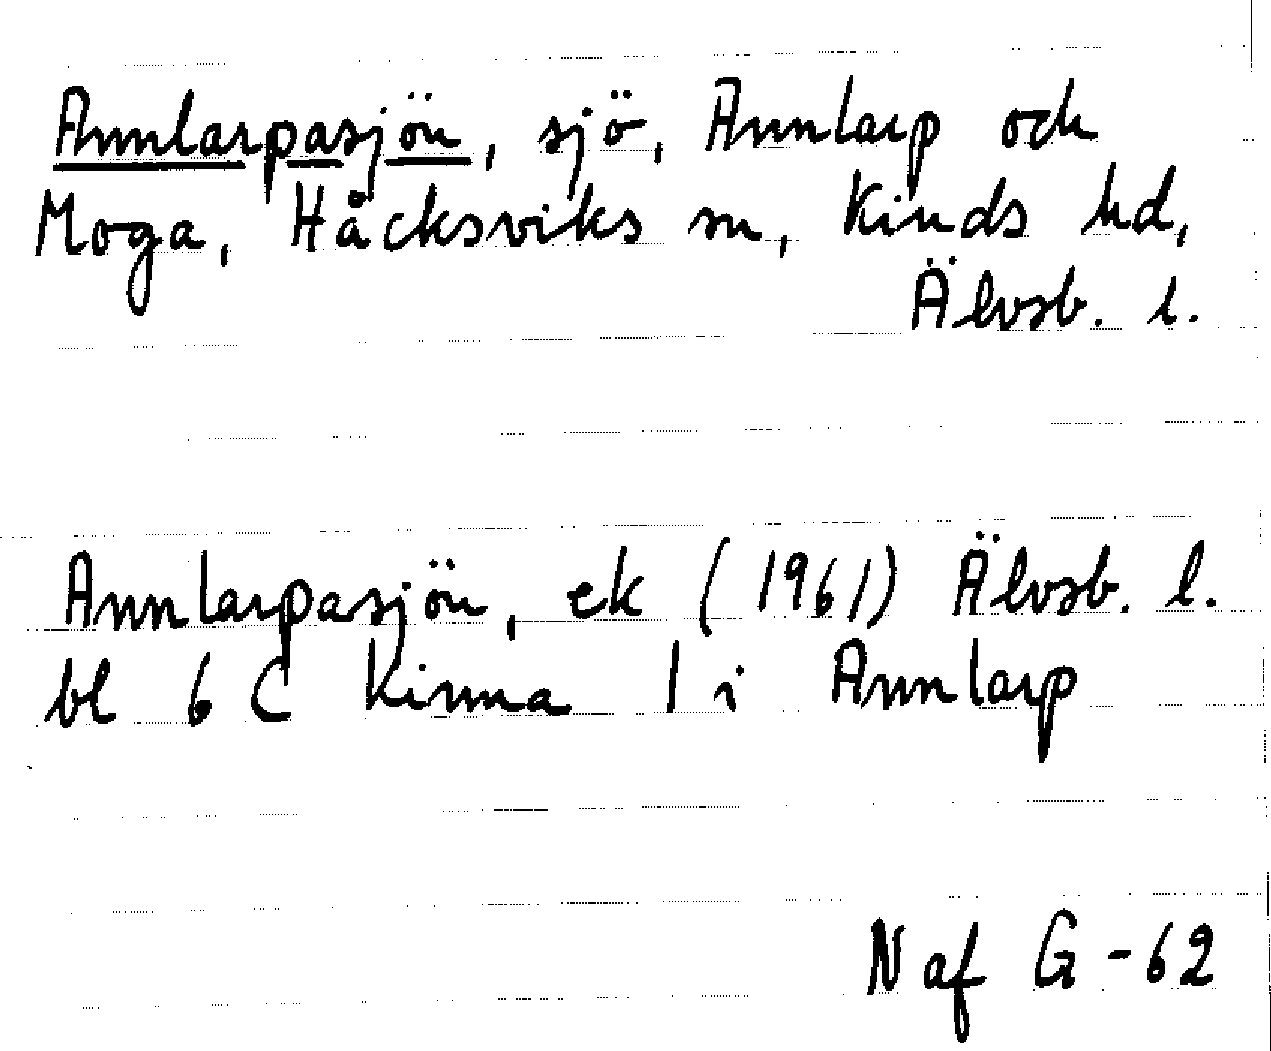 Annlarpasjön, sjö, Annlarp och
Moga, Håcksviks sn, Kinds hd,
Älvsb. l.
Annlarpasjön, ek (1961) Älvsb. l.
bl 6 C Kinna 1 i Annlarp
N af G -62